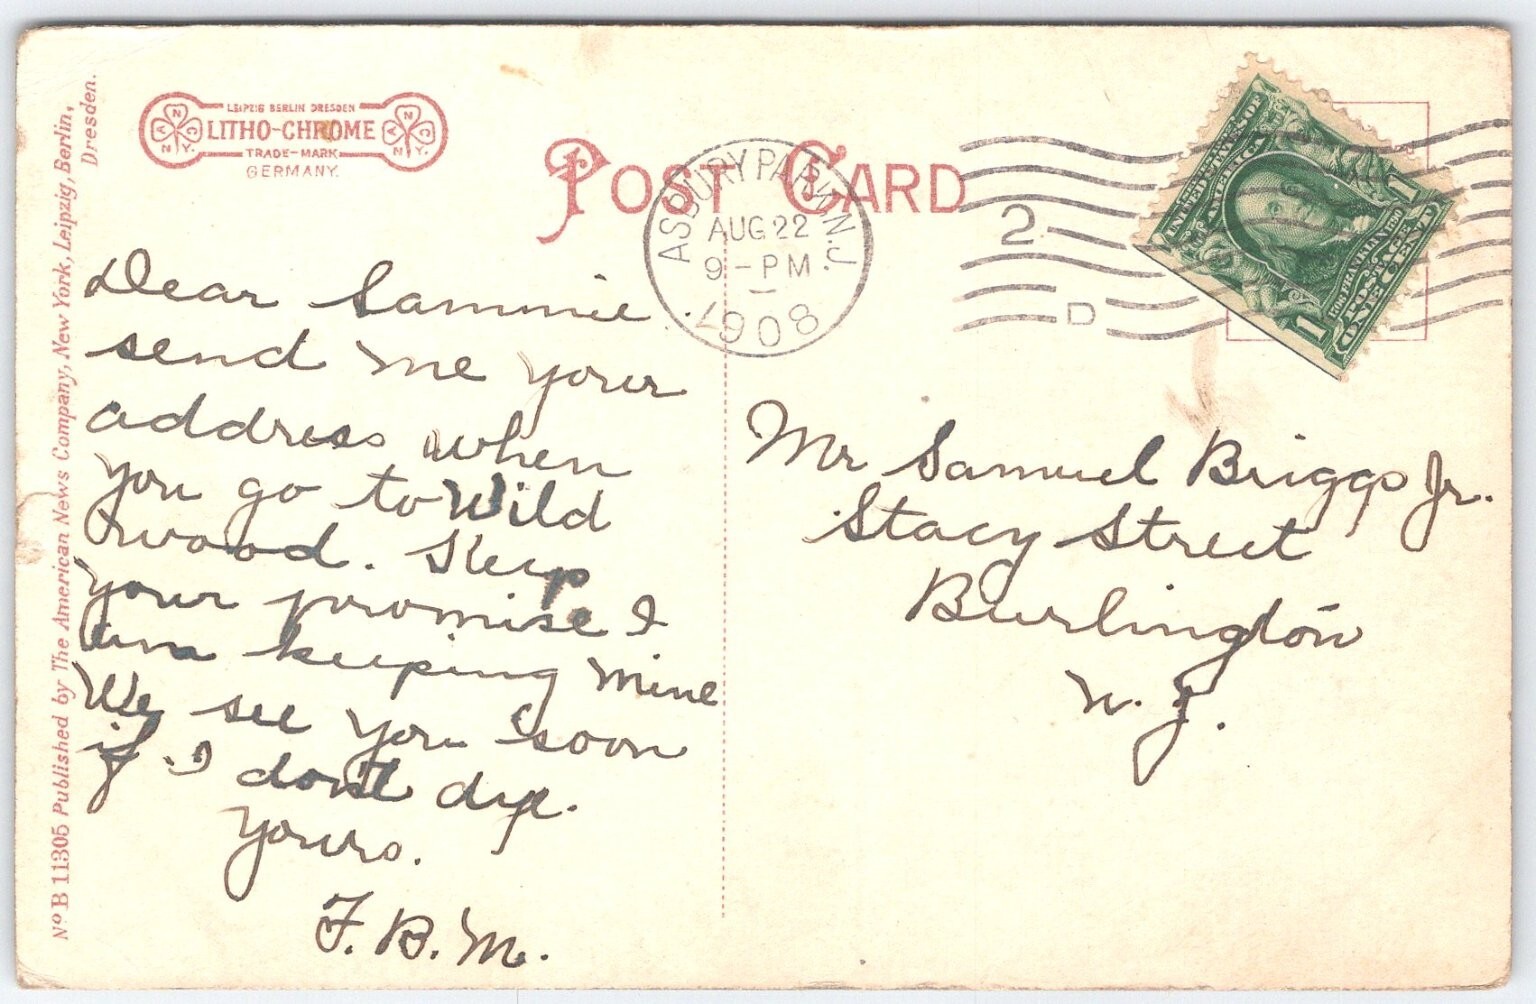 No B 11305 Published by The American News Company, New York, Leipzig, Berlin,
Dresden.
LEIPZIG BERLIN DRESDEN
LITHO-CHROME
TRADE-MARK
GERMANY.
A N C N.Y.
A N C N.Y.
POST CARD
ASBURY PARK, N.J.
AUG 22
9-PM
1908
2
D
UNITED STATES OF
AMERICA
FRANKLIN 1790
POSTAGE
ONE CENT
1
1
Dear Sammie.
send me your
address when
you go to Wild
wood. Keep
your promise I
am keeping mine
We see you soon
if I don't die.
Yours.
F. B. M.
Mr Samuel Briggs Jr.
Stacy Street
Burlington
N. J.